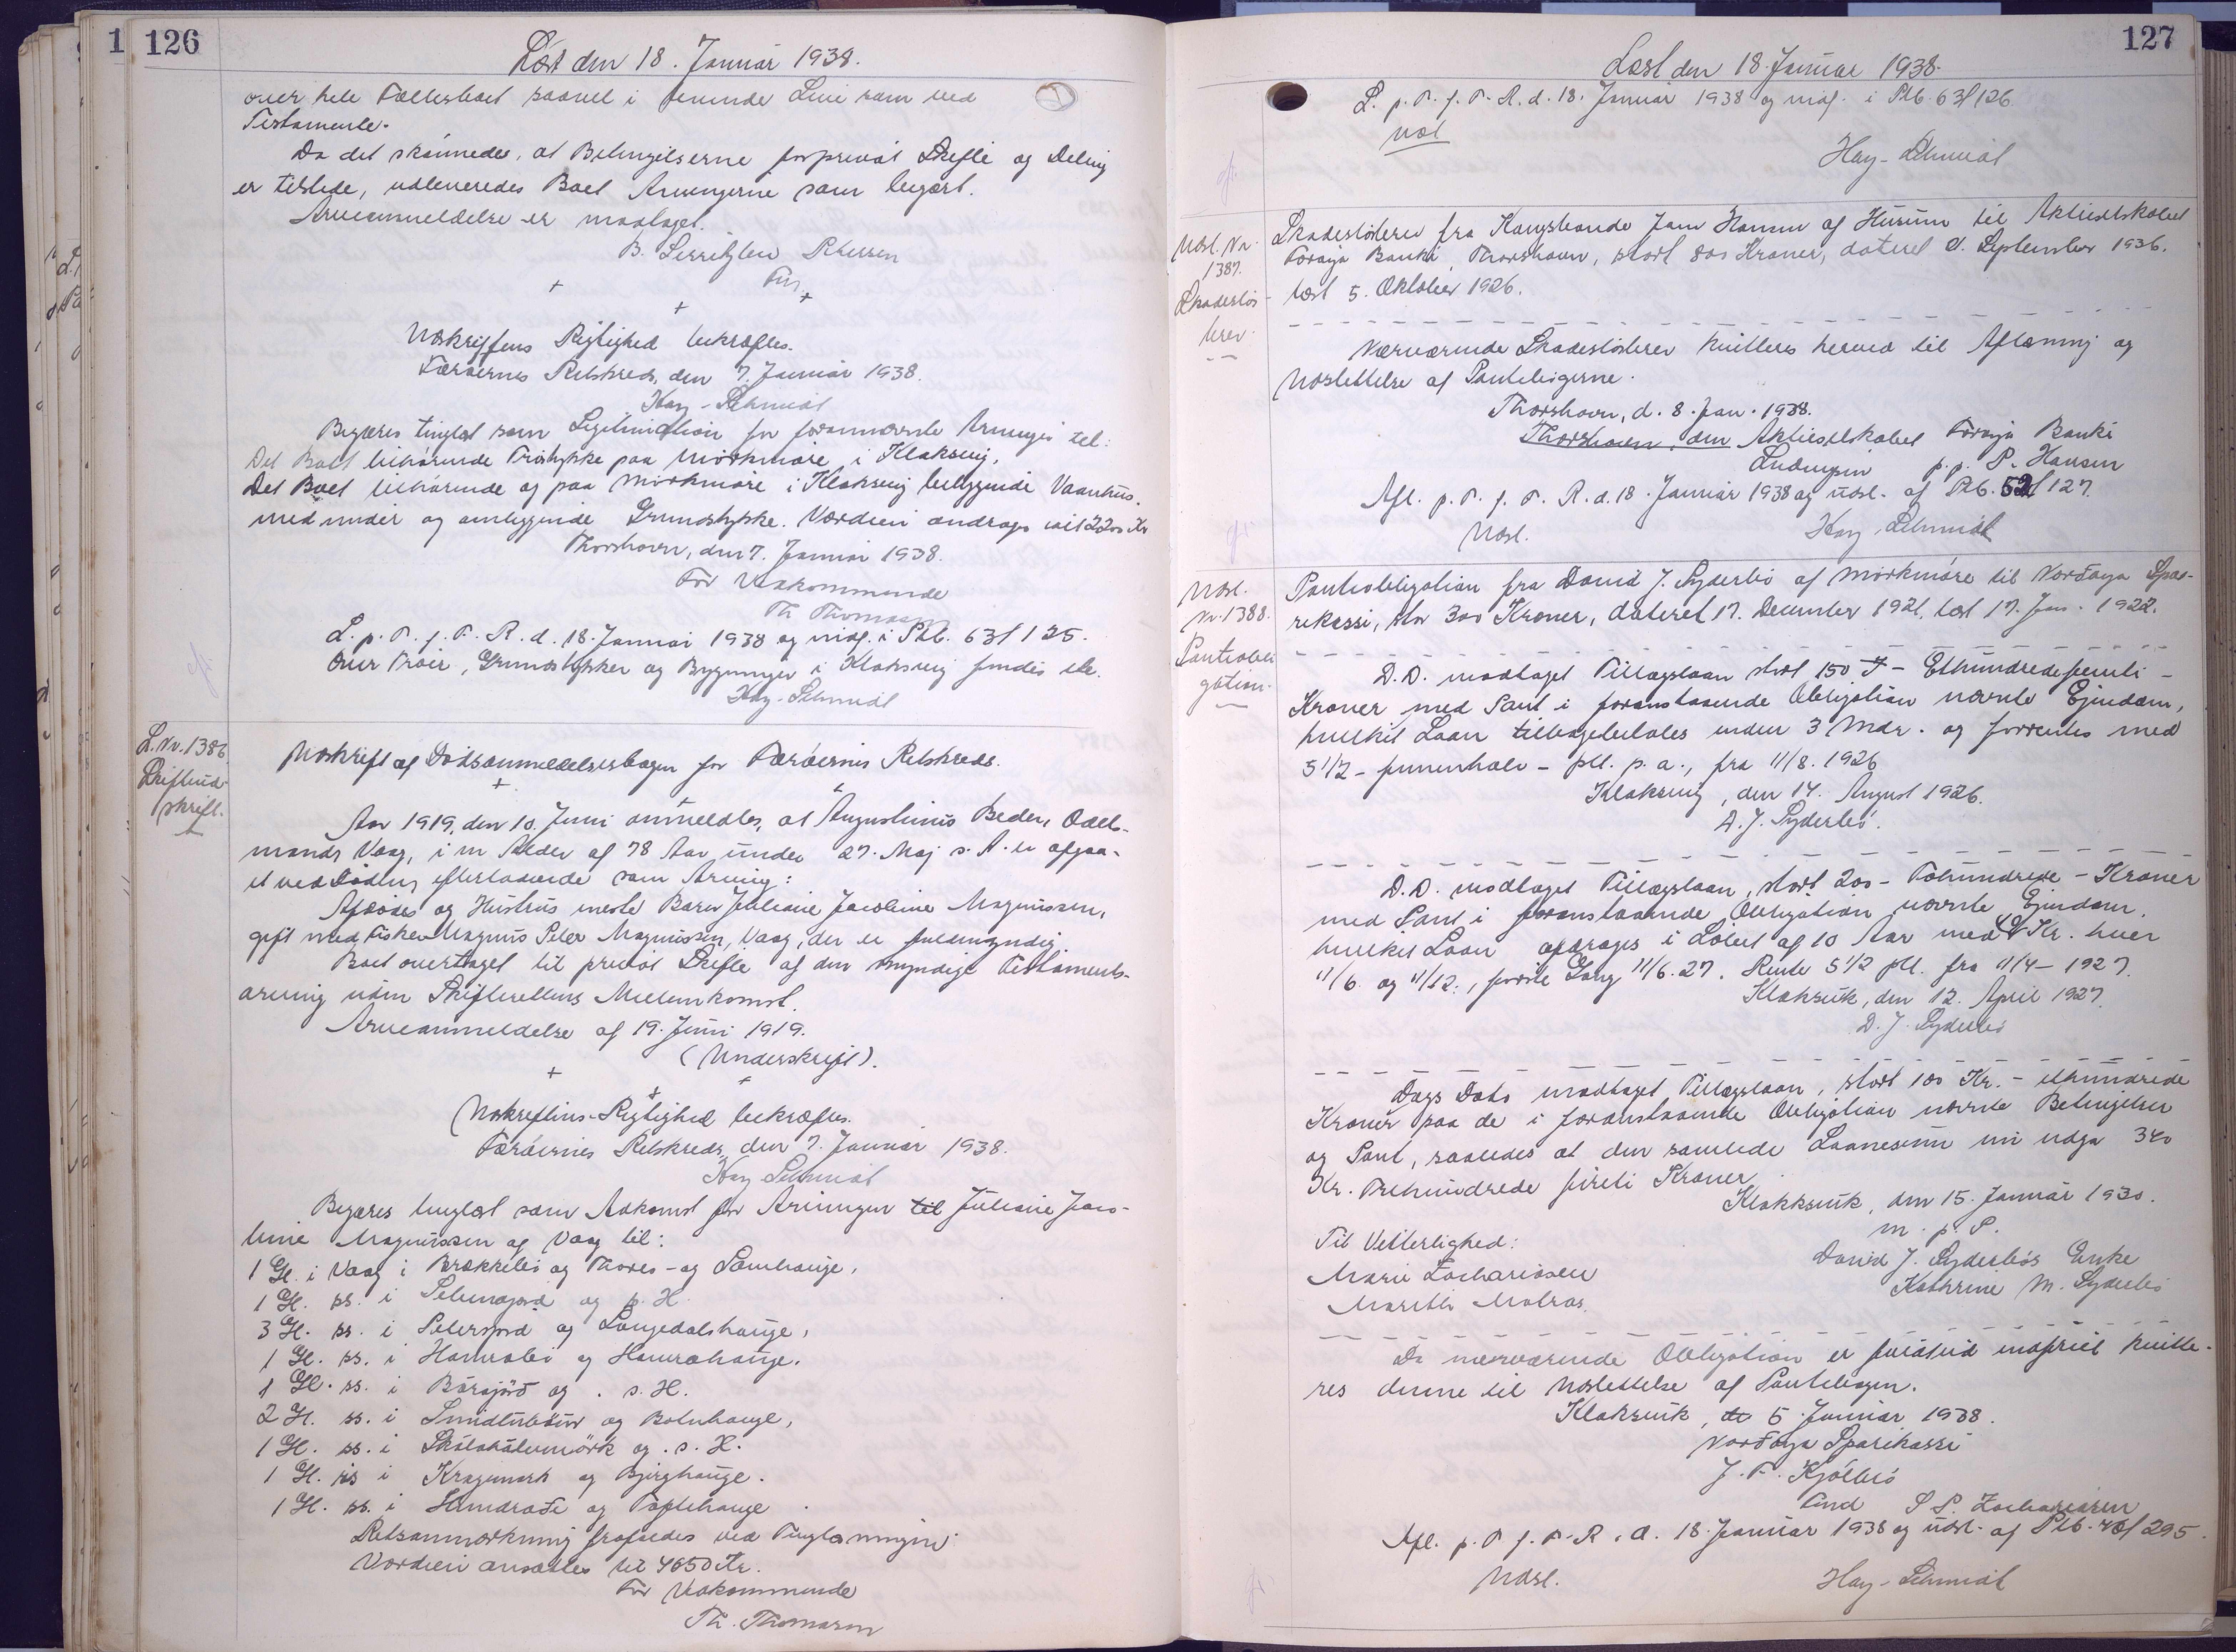 126
Læst den 18. Januar 1938.
over hele Fællesboet saavel i levende Live som ved
Testamente.
Da det skønnedes, at Betingelserne for privat Skifte og Deling
er tilstede, udleveredes Boet Arvingerne som begært.
Arveanmeldelse er modtaget.
B. Lerritzlew
Fm.
Udskriftens Rigtighed bekræftes.
Færøernes Retskreds, den 7. Januar 1938.
Hay-Schmidt
Begæres tinglæst som Legitimation for forannævnte Arvinger til:
Det Boet tilhørende Træstykke paa Mörkmøre i Klaksvig,
Det Boet tilhørende og paa Mörkmøre i Klaksvig beliggende Vaanhus
med under og omliggende Grundstykke. Værdien andrages til 2200 Kr
Thorshavn, den 7. Januar 1938.
For Vedkommende
Th Thomasen
L. p. T. f. F. R. d. 18. Januar 1938 og indf. i Ptb. 63 f 125.
Over Træer, Grundstykker og Bygninger i Klaksvig findes ste.
Hay-Schmidt
L. Nr. 1386
Skifteud-
skrift.
Udskrift af Dødsanmeldelsesbogen for Færøernes Retskreds.
Aar 1919, den 10. Juni anmeldtes, at Augustinus Beder, Odels-
mand, Vaag, i en Alder af 78 Aar under 27. Maj s. A. er afgaa-
et ved Døden efterladende som Arving:
Afdødes og Hustrus eneste Barn Juliane Jacobine Magnussen,
gift med Fisker Magnus Peter Magnussen, Vaag, der er fuldmyndig.
Boet overtaget til privat Skifte af den myndige Testaments-
arving uden Skifterettens Mellemkomst.
Arveanmeldelse af 19. Juni 1919.
(Underskrift).
Udskriftens Rigtighed bekræftes.
Færøernes Retskreds, den 7. Januar 1938.
Hay Schmidt
Begæres tinglæst som Adkomst for Arvingen til Juliane Jaco-
bine Magnussen af Vaag til:
1 Gl. i Vaag i Brekkebø og Thores- og Lamhauge,
1 Gl. ss. i og s. H.
3 Gl. ss. i Petersjord og Langedalshauge,
1 Gl. ss. i Hamrabø og Hamrahauge.
1 Gl. ss. i Bárajörd og . s. H.
2 Gl. ss. i og Botnhauge,
1 Gl. ss. i Skálahálvmörk og . s. H.
1 Gl. ss i Kragumark og Bjerghauge.
1 Gl. ss. i og Toptehauge
Retsanmærkning frafaldes ved Tinglæsningen.
Værdien ansættes til 4650 Kr.
For Vedkommende
Th. Thomasen
127
Læst den 18. Januar 1938.
L. p. T. f. F. R. d. 18. Januar 1938 og indf. i Ptb. 63 f 126
Udsl
Hay-Schmidt
Udsl. Nr.
1387.
Skadesløs-
brev.
Skadesløsbrev fra Kongsbonde Jens Hansen af Húsum til Aktieselskabet
Føroya Banki, Thorshavn, stort 800 Kroner, dateret d. September 1936.
læst 5. Oktober 1926.
Nærværende Skadesløsbrev kvitteres herved til Aflæsning og
Udslettelse af Pantebøgerne.
Thorshavn, d. 8. Jan. 1938.
Thorshavn, den Aktieselskabet Føroya Banki
p.p. P. Hansen
Afl. p. T. f. F. R. d. 18. Januar 1938 og udsl. af Ptb. 52 f 127.
Udsl.
Hay Schmidt
Udsl.
Nr. 1388.
Pantobli
gation.
Pantobligation fra David J. Syderbø af Mörkmøre til Nordoya Spar-
rikassi, stor 300 Kroner, dateret 17. December 1921, læst 17. Jan. 1922.
D.D. modtaget Tillægslaan stort 150 - Ethundredefemti -
Kroner med Pant i foranstaaende Obligation nævnte Ejendom,
hvilket Laan tilbagebetales inden 3 Mdr. og forrentes med
5 1/2 - femenhalv - pCt. p. a., fra 11/8. 1926
Klaksvig, den 14. August 1926.
D. J. Syderbø.
D.D. modtaget Tillægslaan, stort 200 - Tohundrede - Kroner
med Pant i foranstaaende Obligation nævnte Ejendom,
hvilket Laan afdrages i Løbet af 10 Aar med Kr. hver
11/6. og 11/12., første Gang 11/6. 27. Rente 5 1/2 pCt. fra 11/4 - 1927.
Klaksvik, den 12. April 1927.
D. J. Syderbø
Dags Dato modtaget Tillægslaan, stort 100 Kr. - ethundrede
Kroner paa de i foranstaaende Obligation nævnte Betingelser
og Pant, saaledes at den samlede Laanesum nu udgør 340
Kr. Trehundrede fireti Kroner
Klakksvík, den 15. Januar 1930.
m. p. P.
Til Vitterlighed:
David J. Syderbøs Enke
Marie Zachariasen
Kathrine M. Syderbø
Marethe Matras.
Da nærværende Obligation er fuldtud indfriet kvitte-
res denne til Udslettelse af Pantebogen.
Klaksvik, de 5 Januar 1938.
Nordoya Sparikassi
J. F. Kjölbro
Find S P. Zachariasen
Afl. p. T. f. F. R. d. 18. Januar 1938 og udsl. af Ptb. 48 f 295.
Udsl.
Hay-Schmidt